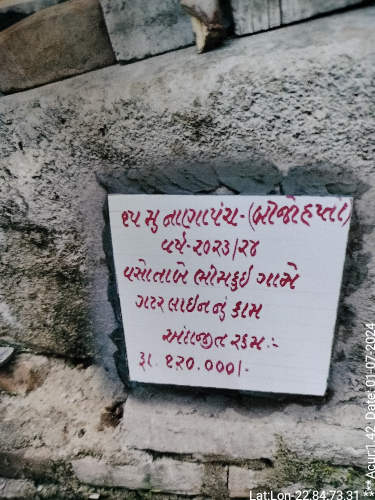 ૧૫ મુ નાણાપંચ-(બીજોહપ્તા)
વર્ષ-૨૦૨૩/૨૪
ગામે
ગટર લાઇન નું કામ
અંદાજીત રકમ:-
રૂા. ૧૨૦.૦૦૦/-
Lat:Lon-22.84:73.31
***Acur:1.42 Date: 01-07-2024